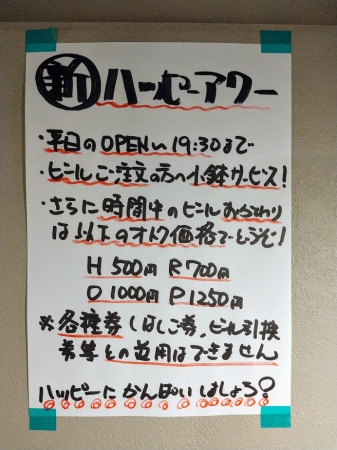 新 ハッピーアワー
・平日のOPEN〜19:30まで
・ビールご注文の方へ小鉢サービス!
・さらに時間中のビールおかわり
は以下のオトク価格でどうぞ!
H 500円 R 700円
O 1000円 P 1250円
※各種券(はしご券、ビール引換
券等との並用はできません
ハッピーにかんぱいしましょう!